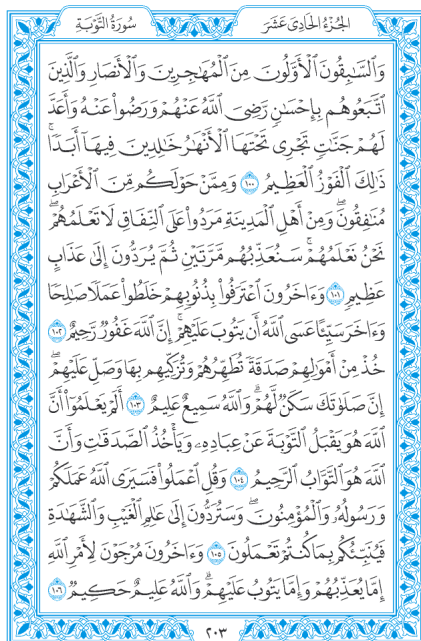 الجُزْءُ الحَادِى عَشَرَ
سُورَةُ التَّوْبَةِ
وَٱلسَّٰبِقُونَ ٱلْأَوَّلُونَ مِنَ ٱلْمُهَٰجِرِينَ وَٱلْأَنصَارِ وَٱلَّذِينَ
ٱتَّبَعُوهُم بِإِحْسَٰنٍ رَّضِىَ ٱللَّهُ عَنْهُمْ وَرَضُوا۟ عَنْهُ وَأَعَدَّ
لَهُمْ جَنَّٰتٍ تَجْرِى تَحْتَهَا ٱلْأَنْهَٰرُ خَٰلِدِينَ فِيهَآ أَبَدًا ۚ
ذَٰلِكَ ٱلْفَوْزُ ٱلْعَظِيمُ ١٠٠ وَمِمَّنْ حَوْلَكُم مِّنَ ٱلْأَعْرَابِ
مُنَٰفِقُونَ ۖ وَمِنْ أَهْلِ ٱلْمَدِينَةِ مَرَدُوا۟ عَلَى ٱلنِّفَاقِ لَا تَعْلَمُهُمْ ۖ
نَحْنُ نَعْلَمُهُمْ ۚ سَنُعَذِّبُهُم مَّرَّتَيْنِ ثُمَّ يُرَدُّونَ إِلَىٰ عَذَابٍ
عَظِيمٍ ١٠١ وَءَاخَرُونَ ٱعْتَرَفُوا۟ بِذُنُوبِهِمْ خَلَطُوا۟ عَمَلًا صَٰلِحًا
وَءَاخَرَ سَيِّئًا عَسَى ٱللَّهُ أَن يَتُوبَ عَلَيْهِمْ ۚ إِنَّ ٱللَّهَ غَفُورٌ رَّحِيمٌ ١٠٢
خُذْ مِنْ أَمْوَٰلِهِمْ صَدَقَةً تُطَهِّرُهُمْ وَتُزَكِّيهِم بِهَا وَصَلِّ عَلَيْهِمْ ۖ
إِنَّ صَلَوٰتَكَ سَكَنٌ لَّهُمْ ۗ وَٱللَّهُ سَمِيعٌ عَلِيمٌ ١٠٣ أَلَمْ يَعْلَمُوٓا۟ أَنَّ
ٱللَّهَ هُوَ يَقْبَلُ ٱلتَّوْبَةَ عَنْ عِبَادِهِۦ وَيَأْخُذُ ٱلصَّدَقَٰتِ وَأَنَّ
ٱللَّهَ هُوَ ٱلتَّوَّابُ ٱلرَّحِيمُ ١٠٤ وَقُلِ ٱعْمَلُوا۟ فَسَيَرَى ٱللَّهُ عَمَلَكُمْ
وَرَسُولُهُۥ وَٱلْمُؤْمِنُونَ ۖ وَسَتُرَدُّونَ إِلَىٰ عَٰلِمِ ٱلْغَيْبِ وَٱلشَّهَٰدَةِ
فَيُنَبِّئُكُم بِمَا كُنتُمْ تَعْمَلُونَ ١٠٥ وَءَاخَرُونَ مُرْجَوْنَ لِأَمْرِ ٱللَّهِ
إِمَّا يُعَذِّبُهُمْ وَإِمَّا يَتُوبُ عَلَيْهِمْ ۗ وَٱللَّهُ عَلِيمٌ حَكِيمٌ ١٠٦
٢٠٣